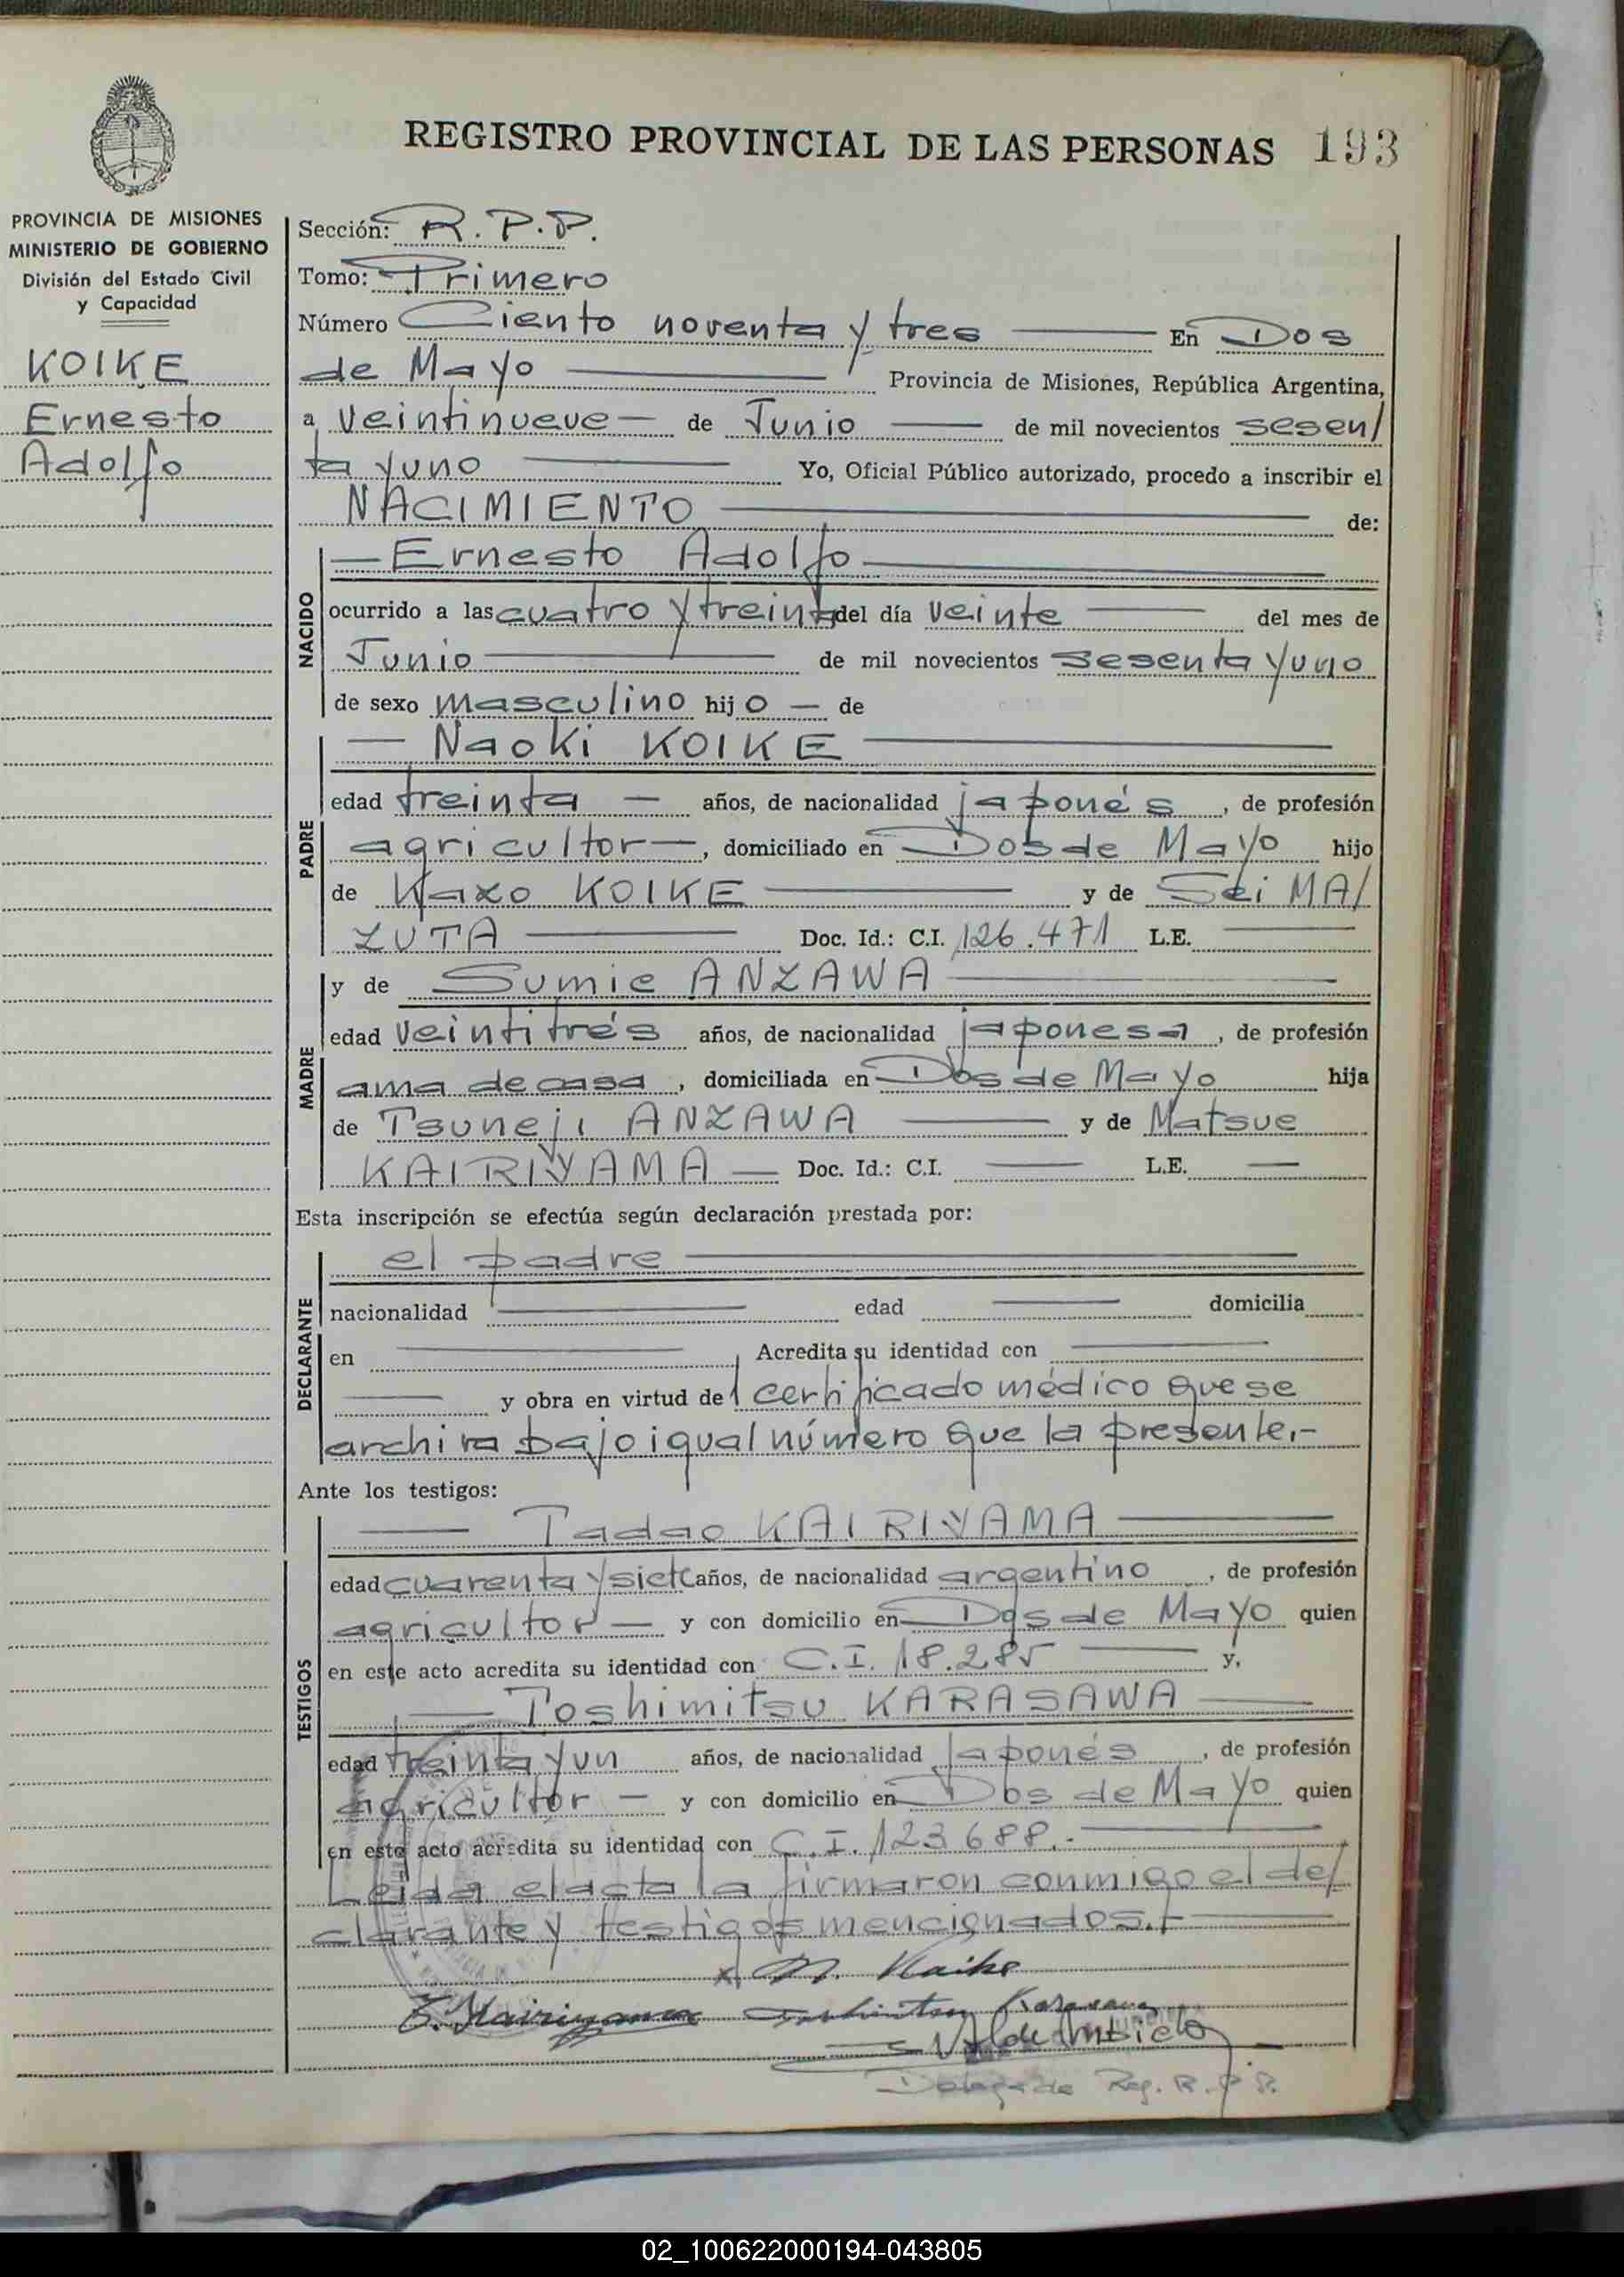 REGISTRO PROVINCIAL DE LAS PERSONAS 193
PROVINCIA DE MISIONES
MINISTERIO DE GOBIERNO
División del Estado Civil
y Capacidad
KOIKE
Ernesto
Adolfo
Sección: R.P.P.
Tomo: Primero
Número Ciento noventa y tres En Dos
de Mayo Provincia de Misiones, República Argentina,
a veintinueve de Junio de mil novecientos sesen/
ta y uno Yo, Oficial Público autorizado, procedo a inscribir el
NACIMIENTO de:
NACIDO
Ernesto Adolfo
ocurrido a las cuatro y treinta del día veinte del mes de
Junio de mil novecientos sesenta y uno
de sexo masculino hijo de
PADRE
Naoki KOIKE
edad treinta años, de nacionalidad japonés, de profesión
agricultor, domiciliado en Dos de Mayo hijo
de Kazo KOIKE y de Sei MA/
ZUTA Doc. Id.: C.I. 126.471 L.E.
MADRE
y de Sumie ANZAWA
edad veintitrés años, de nacionalidad japonesa, de profesión
ama de casa, domiciliada en Dos de Mayo hija
de Tsuneji ANZAWA y de Matsue
KAIRIYAMA Doc. Id.: C.I. L.E.
Esta inscripción se efectúa según declaración prestada por:
DECLARANTE
el padre
nacionalidad edad domicilia
en Acredita su identidad con
y obra en virtud del certificado médico que se
archiva bajo igual número que la presente.-
Ante los testigos:
TESTIGOS
Tadao KAIRIYAMA
edad cuarenta y siete años, de nacionalidad argentino, de profesión
agricultor y con domicilio en Dos de Mayo quien
en este acto acredita su identidad con C.I. 18.285 y,
Toshimitsu KARASAWA
edad treinta y un años, de nacionalidad japonés, de profesión
agricultor y con domicilio en Dos de Mayo quien
en este acto acredita su identidad con C.I. 123.688.-
Leida el acta la firmaron conmigo el de/
clarante y testigos mencionados.-
x N. Koike
T. Kairiyama Toshimitsu Karasawa
Delegada Reg. R.P.P.
02_100622000194-043805